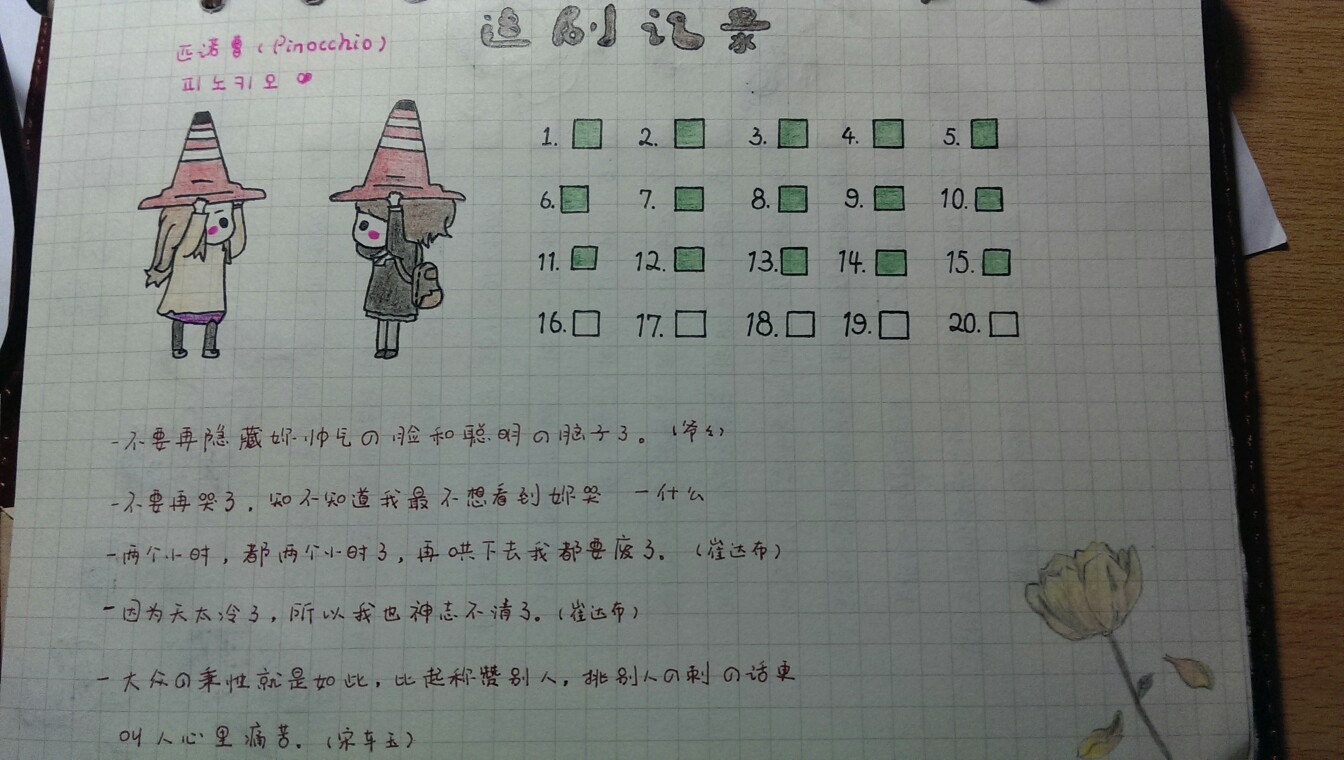 追剧记录
匹诺曹 (Pinocchio)
피노키오
1. 2. 3. 4. 5.
6. 7. 8. 9. 10.
11. 12. 13. 14. 15.
16. 17. 18. 19. 20.
-不要再隐藏妳帅气の脸和聪明の脑子了。(爷爷)
-不要再哭了，知不知道我最不想看到妳哭 一什么
-两个小时，都两个小时了，再哄下去我都要废了。(崔达布)
-因为天太冷了，所以我也神志不清了。(崔达布)
-大众の秉性就是如此，比起称赞别人，挑别人の刺の话更
叫人心里痛苦。(宋车玉)